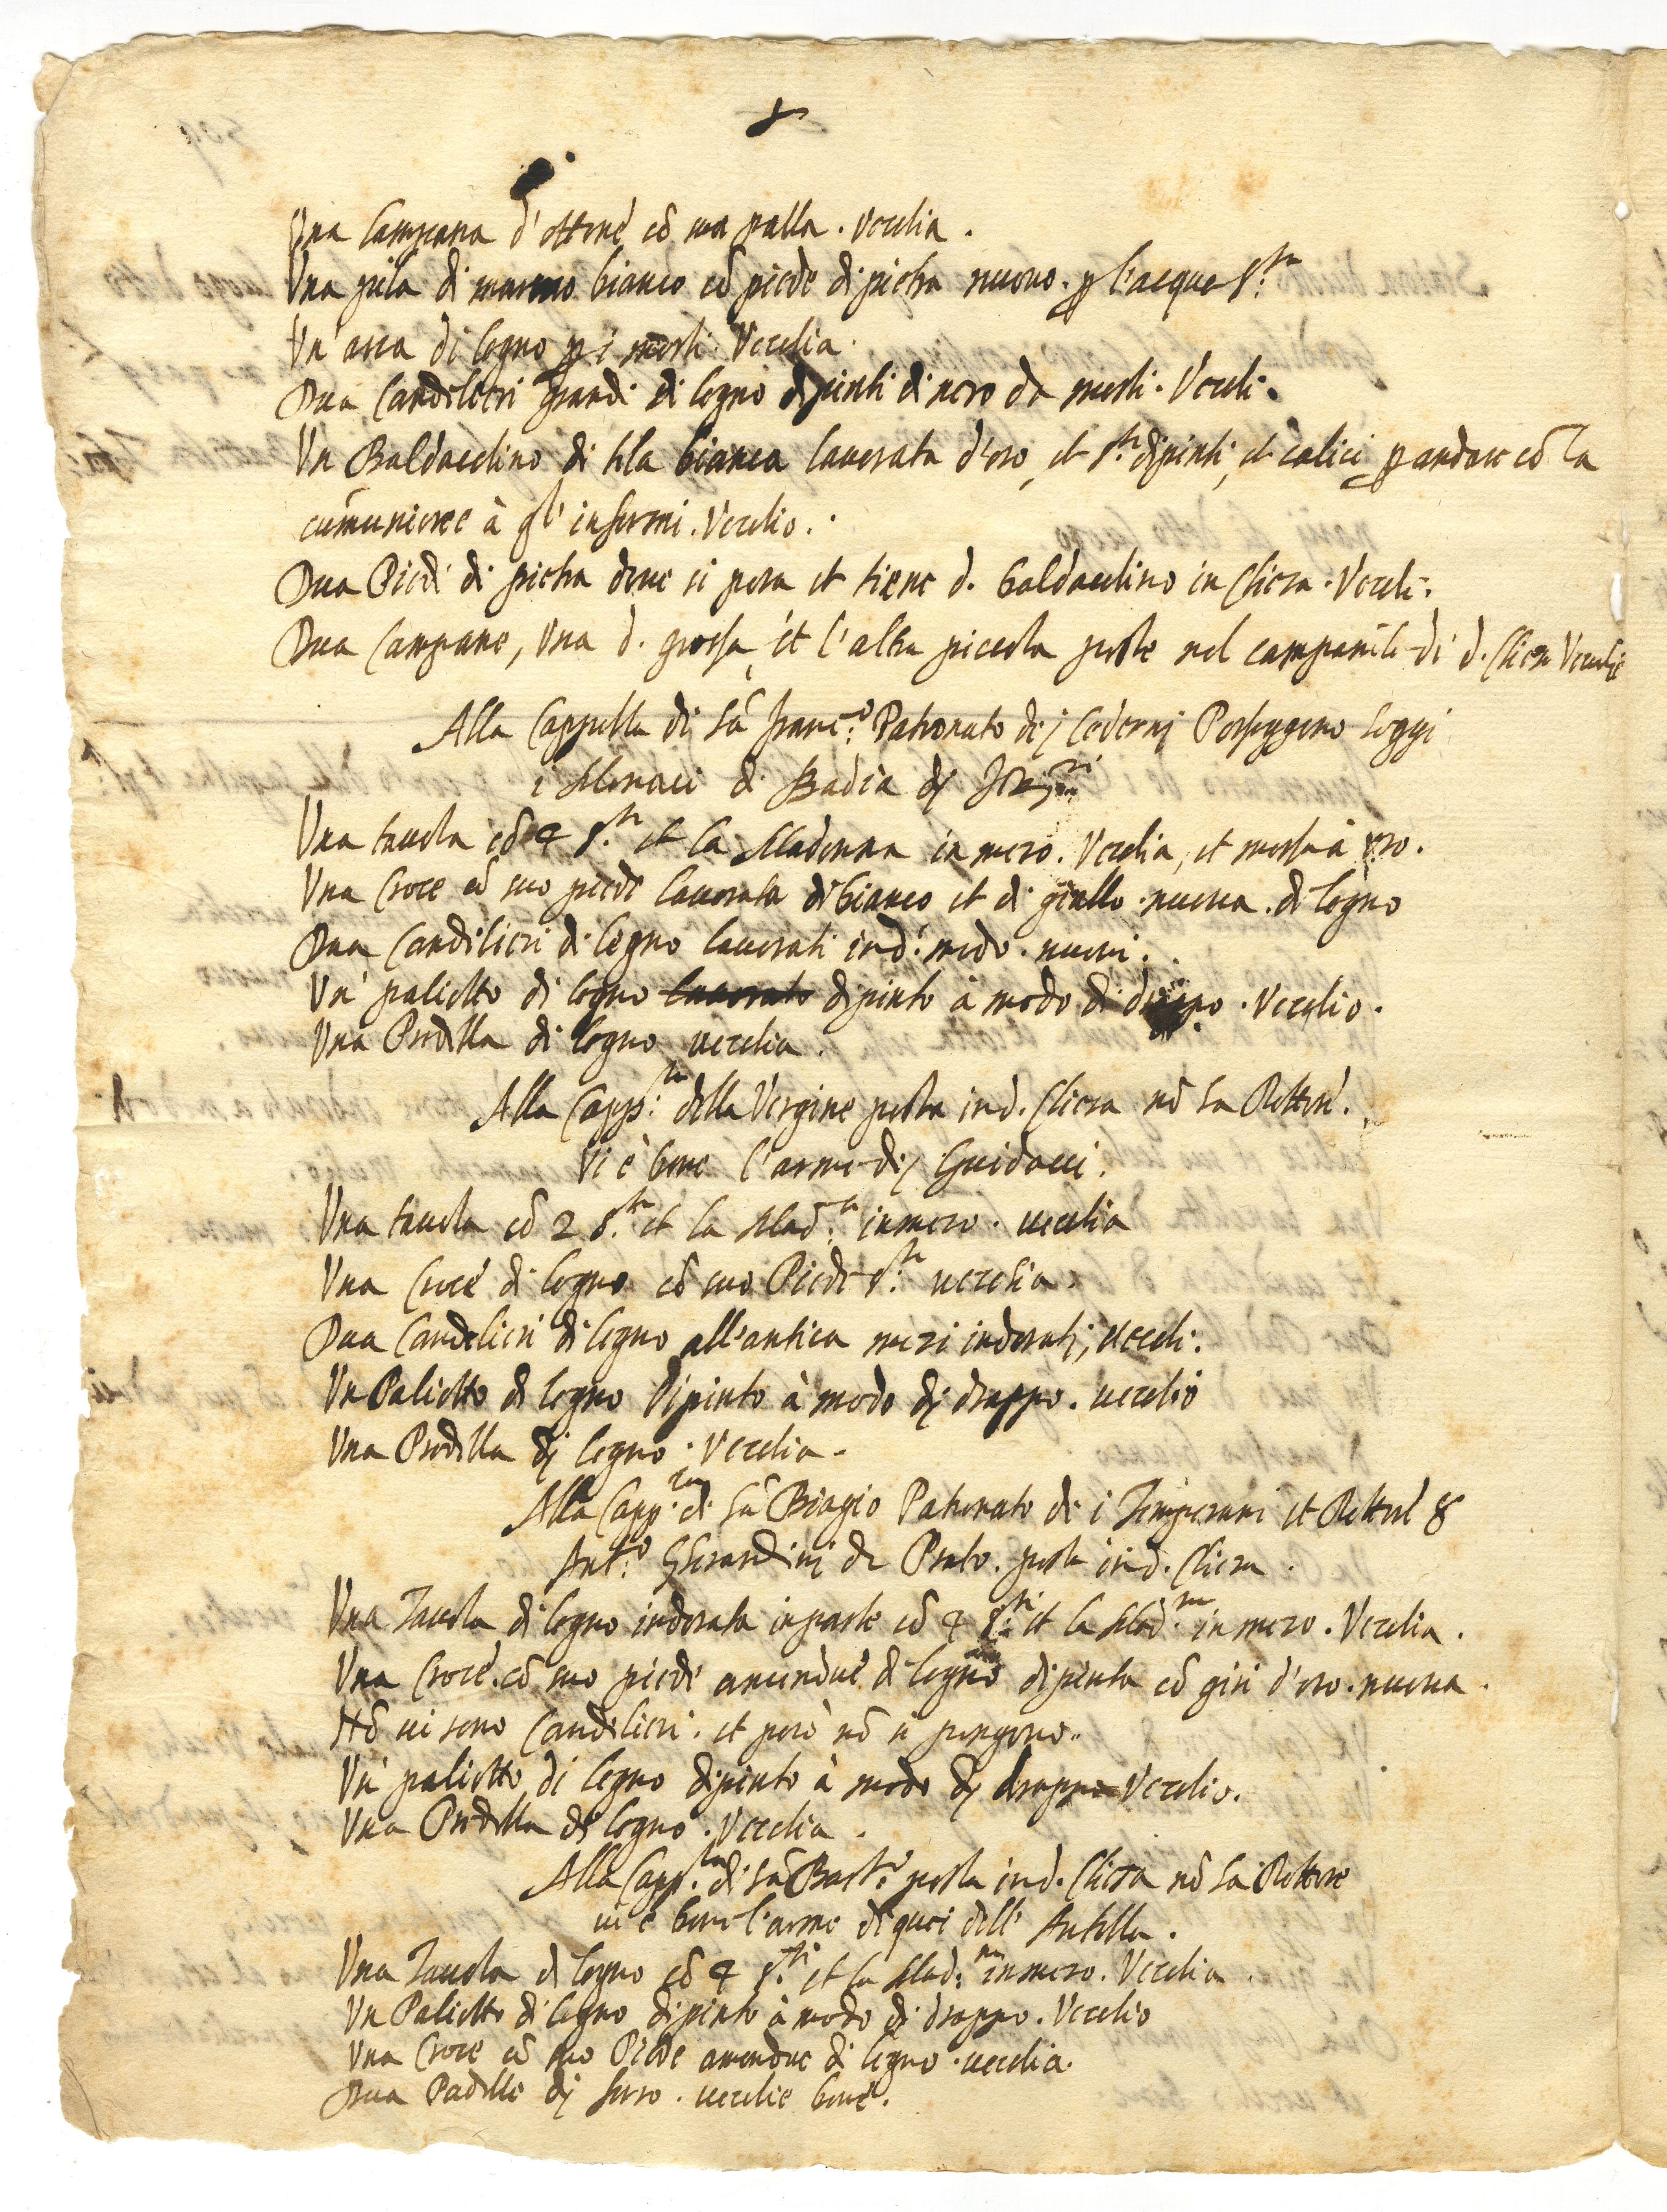 Una Campana d'ottone cō sua palla. Vecchia.
Una pila di marmo bianco cō piede di pietra nuovo. p l'acqua S.ta
Un'arca di legno p i morti. Vecchia.
Dua Candelieri grandi di legno dipinti di nero da morti. Vecchi.
Un Baldacchino di tela bianca lavorata d'oro, et S.ti dipinti, et calici p andare cō la
cumunione à gl'infermi. Vecchio.
Dua Piedi di pietra dove si posa et tiene d. baldacchino in Chiesa. Vecchi.
Dua Campane, una d. grossa, et l'altra piccola poste nel campanile di d. Chiesa Vecchie
Alla Cappella di Sā Franc.o Patronato dej Cederni Posseggono hoggi
i Monaci di Badia dj
Una tavola cō 4 S.ti et la Madonna in mezo. Vecchia, et messa à oro.
Una Croce cō suo piede lavorata di bianco et di giallo. nuova. di legno
Dua Candilieri di legno lavorati in d. modo. nuovi.
Un paliotto di legno lavorato dipinto à modo di drappo. Vecchio.
Una Predella di legno vecchia.
Alla Capp.la della Vergine posta in d. Chiesa nō ha Rettore.
Vi è bene l'arme dej Guidacci.
Una tavola cō 2 S.ti et la Mad.a in mezo. vecchia
Una Croce di legno cō suo Piede S.le vecchia.
Dua Candelieri di legno all'antica mezi indorati, vecchi.
Un Paliotto di legno dipinto à modo dj drappo. vecchio
Una Predella dj legno. Vecchia.
Alla Capp.la di Sā Biagio Patronato de i Temperani et Rettore &
Ant.o Gherardini da Prato. posta in d. Chiesa.
Una Tavola di legno indorata in parte cō 4 S.ti et la Mad.na in mezo. Vecchia.
Una Croce. cō suo piede amendue di legno dipinta cō giri d'oro. nuova.
Nō vi sono Candelieri. et però nō si pongono.
Un paliotto di legno dipinto à modo dj drappo Vecchio.
Una Predella di legno. Vecchia.
Alla Capp.la di Sā Bast.o posta in d. Chiesa nō ha Rettore
vi è bene l'arme di quei dell'Antella.
Una Tavola di legno cō 4 S.ti et la Mad.na in mezo. Vecchia.
Un Paliotto di legno dipinto à modo di drappo. Vecchio
Una Croce cō suo Piede amendue di legno. vecchia.
Dua Padelle dj ferro. vecchie bene.